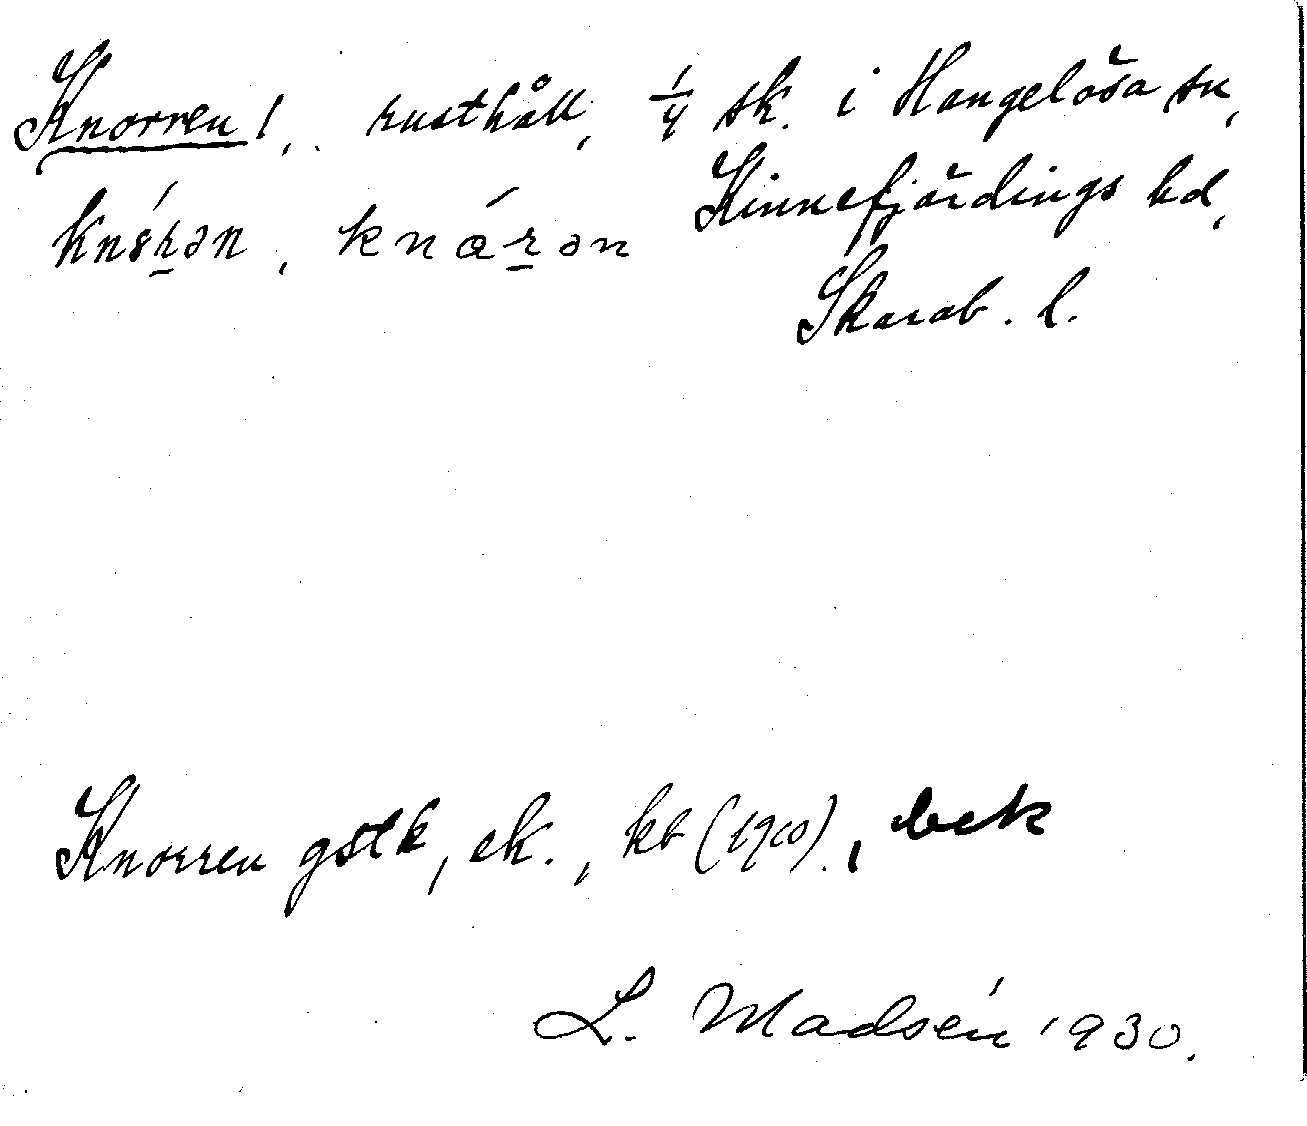 Knorren 1, rusthåll, 1/4 sk. i Hangelösa sn,
Kinnefjärdings hd,
knárən
Skarab. l.
Knorren gstk, ek., kb (1900)., bek
L. Madsén 1930.